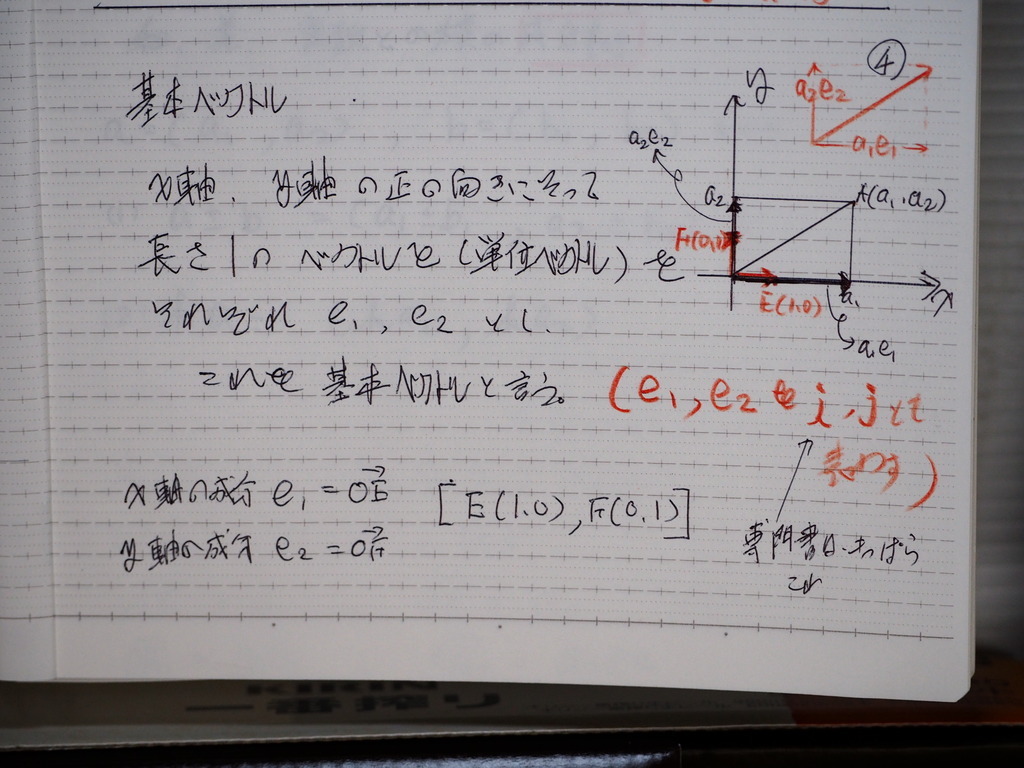 基本ベクトル
x軸、y軸の正の向きにそって
長さ1のベクトルを(単位ベクトル)を
それぞれ e₁, e₂ とし、
これを基本ベクトルと言う。
(e₁, e₂をi、jとも
表わす)
x軸の成分 e₁ = OE→ [E(1.0), F(0.1)]
y軸の成分 e₂ = OF→
専門書はもっぱら
これ
④
a₂e₂
a₁e₁
y
a₂e₂
a₂
A(a₁.a₂)
F(0.1)
E(1.0)
a₁
x
a₁e₁